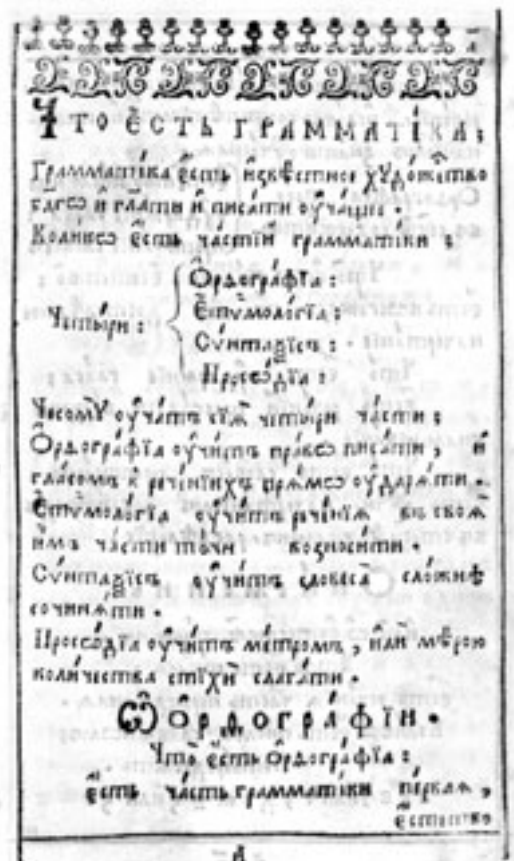 Что̀ є҆́сть грамматі́ка;
Грамматі́ка є҆́сть и҆звѣ́стное хꙋдо́жество
бл҃гѡ и҆ гл҃ати и҆ писа́ти ᲂу҆ча́щее.
Коли́кѡ є҆́сть часті́й грамматі́ки;
Ѻ҆рѳогра́фїа:
Є҆тѷмоло́гїа:
Четы́ри:
Сѷ́нтаѯісъ:
Просѡ́дїа:
Чесомꙋ̀ ᲂу҆ча́тъ сїѧ҄ четы́ри ча́сти;
Ѻ҆рѳогра́фїа ᲂу҆чи́тъ пра́вѡ писа́ти, и҆
гла́сомъ в рече́нїихъ прѧ́мѡ ᲂу҆дарѧ́ти.
Є҆тѷмоло́гїа ᲂу҆чи́тъ рече́нїѧ в своѧ̑
и҆̀мъ ча́сти то́чнѣ возноси́ти.
Сѷ́нтаѯісъ ᲂу҆чи́тъ словеса̀ сло́жнѣ
сочинѧ́ти.
Просѡ́дїа ᲂу҆чи́тъ ме́тромъ, и҆лѝ мѣ́рою
коли́чества стїхѝ слага́ти.
Ѡ҆ ѻ҆рѳогра́фїи.
Что̀ є҆́сть ѻ҆рѳогра́фїа;
є҆́сть ча́сть грамматі́ки пе́рваѧ,
є҆стество